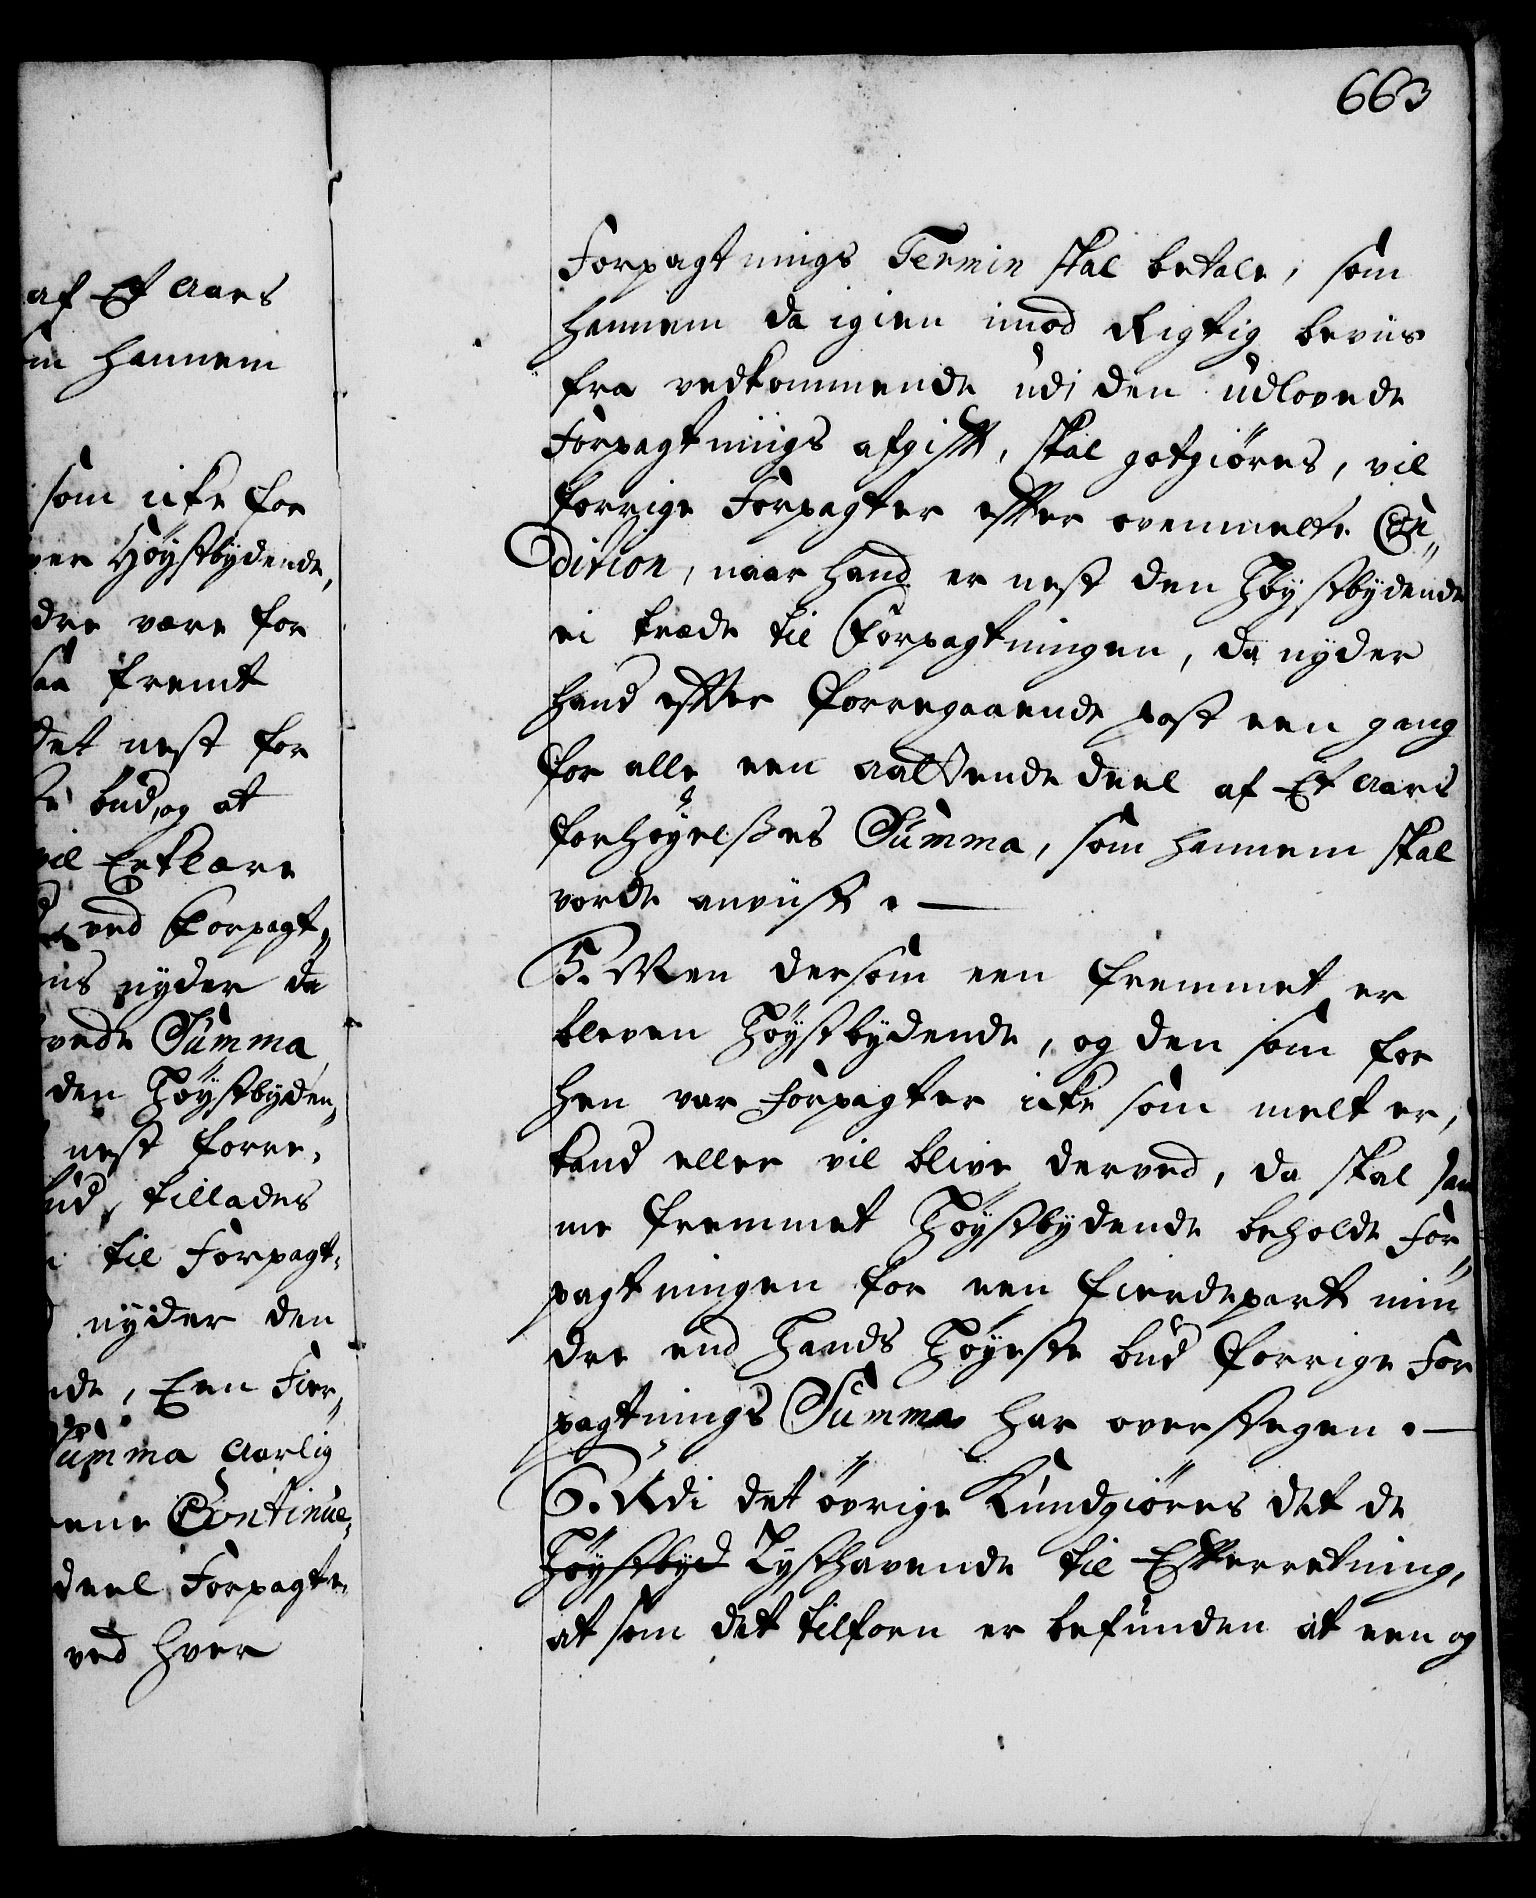 af Et Aars
hannem
som icke for
Høystbydende,
dre være for
saa fremt
det nest for
bud, og at
vil Erklære
ved Forpagt„
nyder da
Summa
den Høystbyden„
nest forre„
bud, tillades
til Forpagt„
nyder den
Een Fier„
Summa Aarlig
Continue„
deel Forpagte„
ved hver
663
Forpagtnings Termin skal betale, som
hannem da igien imod Rigtig beviis
fra vedkommende udi den udlovede
Forpagtnings afgift, skal gotgiøres, vil
forrige Forpagter efter ovenmelte Con„
dition, naar hand er nest den Høystbydende
ei træde til Forpagtningen, da nyder
hand efter forregaaende post een gang
for alle een Aattende deel af Et Aars
forhøyelses Summa, som hannem skal
vorde anviist. —
5. Men dersom een fremmet er
bleven Høystbydende, og den som for
hen var Forpagter icke som melt er,
kand eller vil blive derved, da skal sam
me fremmet Høystbydende beholde For„
pagtningen for een fierdepart min
dre end hands Høyeste bud forrige For
pagtnings Summa har oversteegen. —
6. Udi det øvrige Kundgiøres det de
Høystbyd Lysthavende til Efterretning,
at som det tilforn er befunden at een og